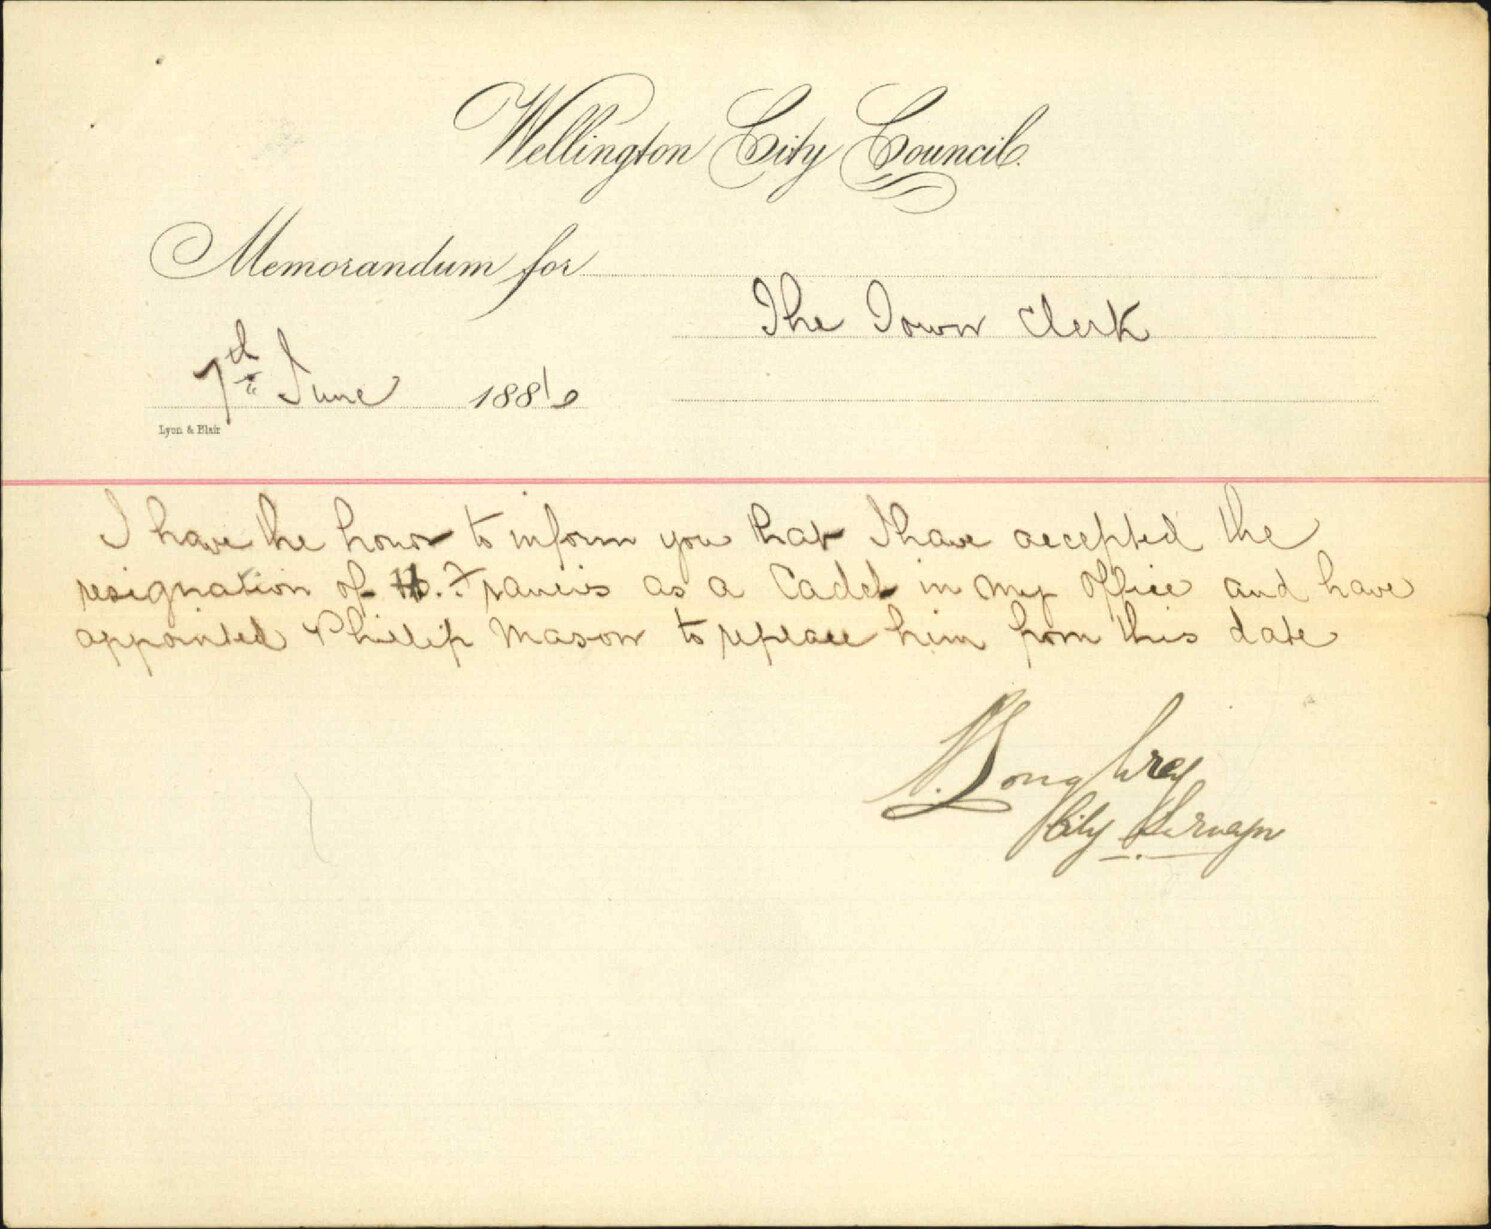 Wellington City Council.
Memorandum for
The Town Clerk
7th June 1886
Lyon & Blair
I have the honor to inform you that I have accepted the
resignation of H. Francis as a Cadet in my office and have
appointed Phillip Mason to replace him from this date
N. Loughrey
City Surveyor